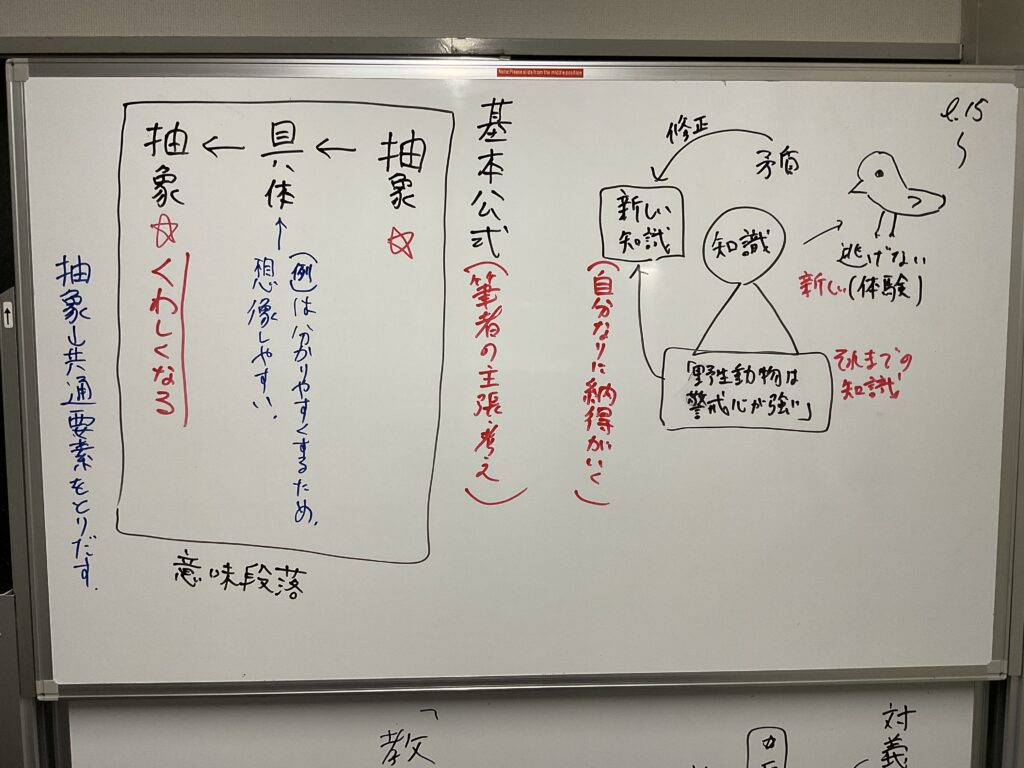 Note:Please slide from the middle position
l.15
矛盾
修正
逃げない
新しい(体験)
知識
新しい
知識
「野生動物は
警戒心が強い」
それまでの
知識
(自分なりに納得がいく)
基本公式(筆者の主張・考え)
抽象☆
具体
(例)は分かりやすくするため、
想像しやすい、
抽象☆くわしくなる
意味段落
抽象→共通要素をとりだす、
対義
教